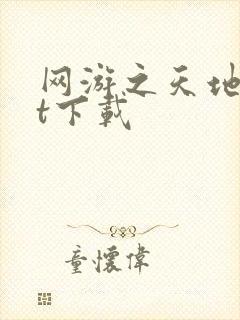 网游之天地
t下载
童怀伟